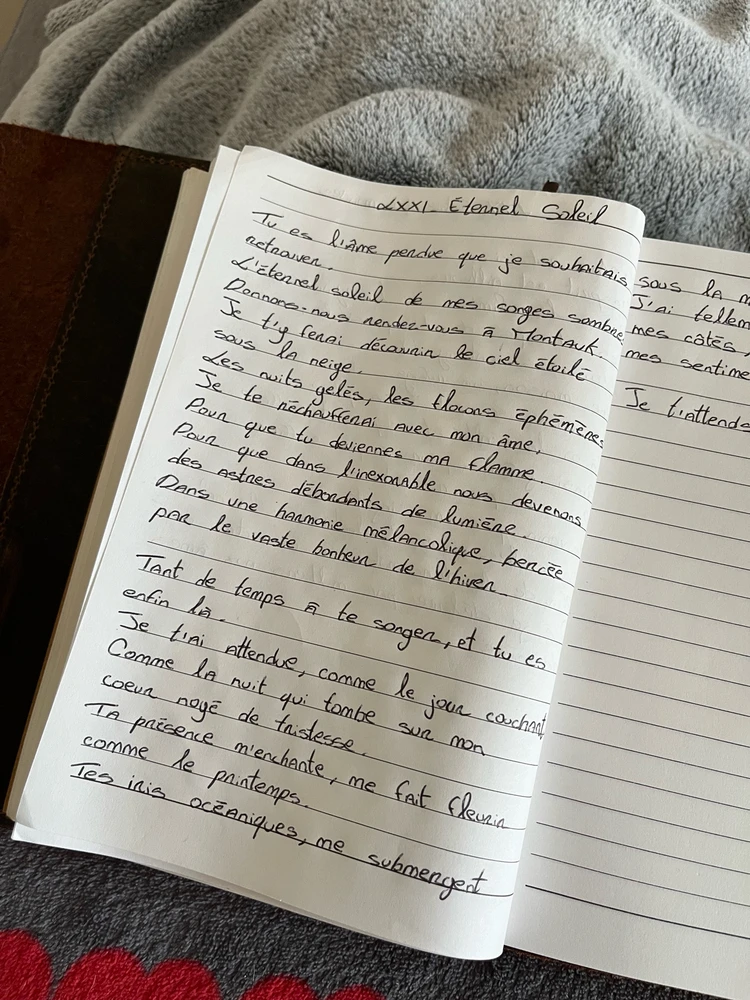 LXXI. Éternel Soleil
Tu es l'âme perdue que je souhaitais
retrouver.
L'éternel soleil de mes songes sombres
Donnons-nous rendez-vous à Montauk.
Je t'y ferai découvrir le ciel étoilé
sous la neige.
Les nuits gelés, les flocons éphémères
Je te réchaufferai avec mon âme,
Pour que tu deviennes ma flamme.
Pour que dans l'inexorable nous devenons
des astres débordants de lumière.
Dans une harmonie mélancolique, bercée
par le vaste bonheur de l'hiver.
Tant de temps à te songer, et tu es
enfin là.
Je t'ai attendue, comme le jour couchant
Comme la nuit qui tombe sur mon
coeur noyé de tristesse.
Ta présence m'enchante, me fait fleurir
comme le printemps.
Tes iris océaniques, me submergent
sous la m
J'ai tellem
mes côtés,
mes sentime
Je t'attends